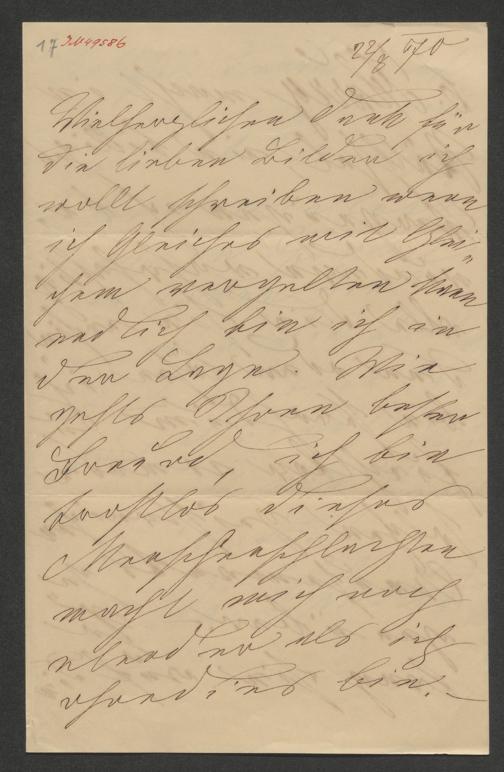 17 I.N 49586
22/8 870
Vielherzlichen Dank für
die lieben Bilder ich
wollt schreiben wenn
ich Gleiches mit Glei„
chem vergelten kann
endlich bin ich in
der Lage. Wie
gehts Ihnen bester
Freund, ich bin
trostlos dieses
Menschenschlachten
macht mich noch
elender als ich
ohnedies bin. –